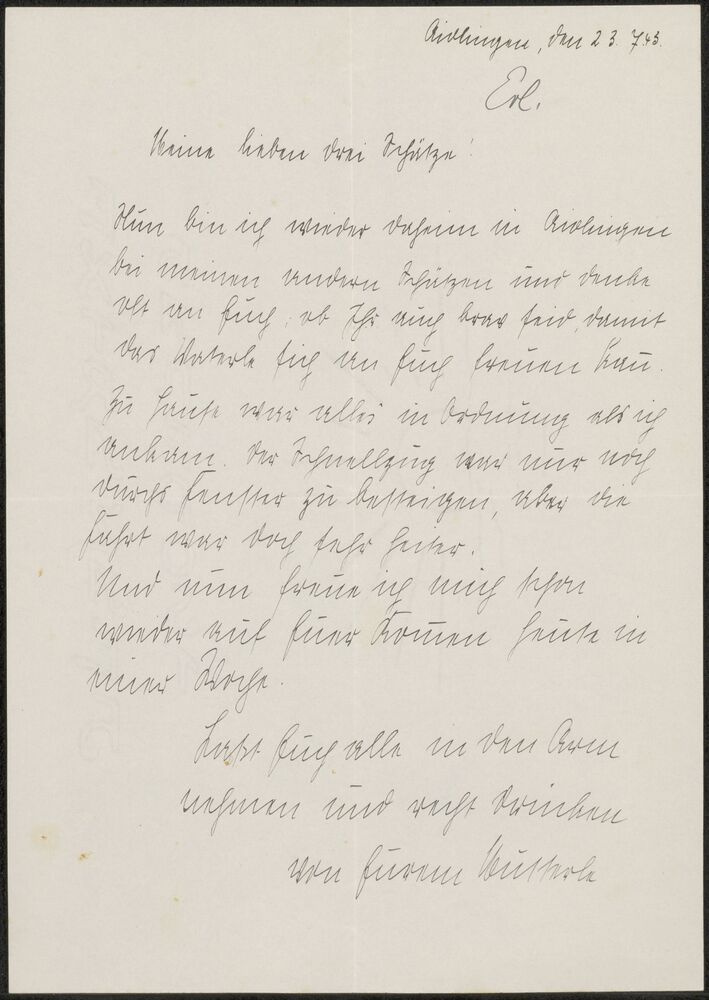 Aidlingen, den 23. 7.43.
Erl.
Meine lieben drei Schätze!
Nun bin ich wieder daheim in Aidlingen
bei meinen andern Schätzen und denke
oft an Euch, ob Ihr auch brav seid, damit
das Vaterle sich an Euch freuen kañ.
Zu Hause war alles in Ordnung als ich
ankam. Der Schnellzug war nur noch
durchs Fenster zu besteigen, aber die
Fahrt war doch sehr heiter.
Und nun freue ich mich schon
wieder auf Euer Kom̄en heute in
einer Woche.
Laßt Euch alle in den Arm
nehmen und recht drücken
von Eurem Mutterle